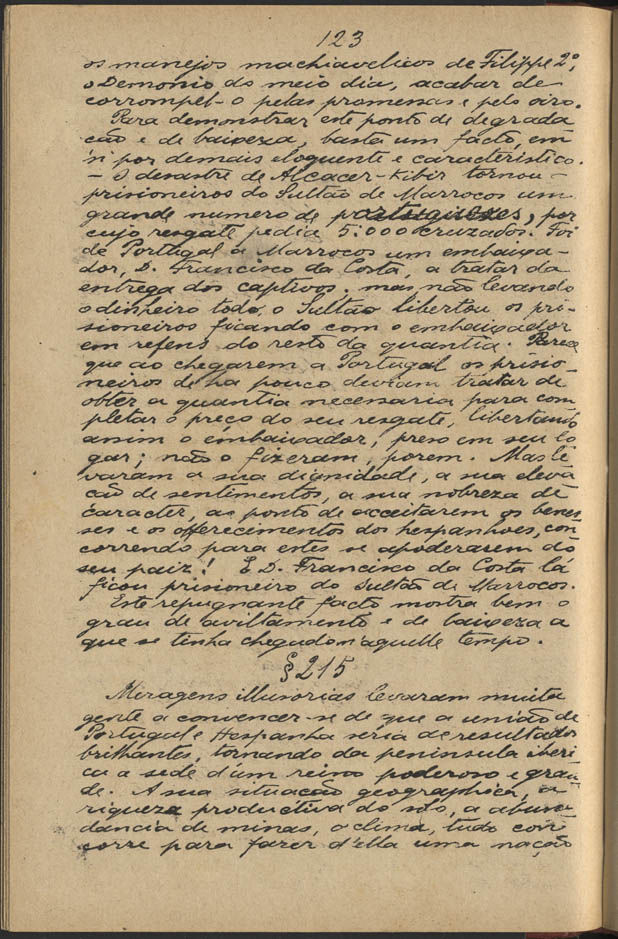 123
os manejos machiavelicos de Filippe 2º,
o Demonio do meio dia, acabar de
corrompel-o pelas promessas e pelo oiro.
Para demonstrar este ponto de degrada
ção e de baixeza, basta um facto, em
si por demais eloquente e caracteristico.
— O desastre de Alcacer-Kibir tornou
prisioneiros do Sultão de Marrocos um
grande numero de portuguezes, por
cujo resgate pedia 5.000 cruzados. Foi
de Portugal a Marrocos um embaixa-
dor, D. Francisco da Costa, a tratar da
entrega dos captivos. mas não levando
o dinheiro todo, o Sultão libertou os pri-
sioneiros ficando com o embaixador
em refens do resto da quantia. Parece
que ao chegarem a Portugal os prisio-
neiros de ha pouco deviam tratar de
obter a quantia necessaria para com
pletar o preço do seu resgate, libertando
assim o embaixador, preso em seu lo
gar; não o fizeram, porem. Mas le
varam a sua dignidade, a sua eleva
ção de sentimentos, a sua nobreza de
caracter, ao ponto de acceitarem os benes
ses e os offerecimentos dos hespanhoes, con
correndo para estes se apoderarem do
seu paiz! E D. Francisco da Costa lá
ficou prisioneiro do Sultão de Marrocos.
Este repugnante facto mostra bem o
grau de aviltamento e de baixeza a
que se tinha chegado n'aquelle tempo.
§ 215
Miragens illusorias levaram muita
gente a convencer-se de que a união de
Portugal e Hespanha seria de resultados
brilhantes, tornando da peninsula iberi
ca a sede d'um reino poderoso e gran
de. A sua situação geographica, a
riqueza productiva do solo, a abun
dancia de minas, o clima, tudo con
corre para fazer d'ella uma nação